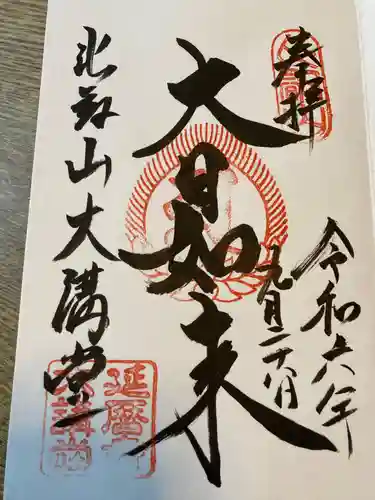 奉拝
令和六年
九月
大日如来
比叡山大講堂
延暦寺
大講堂